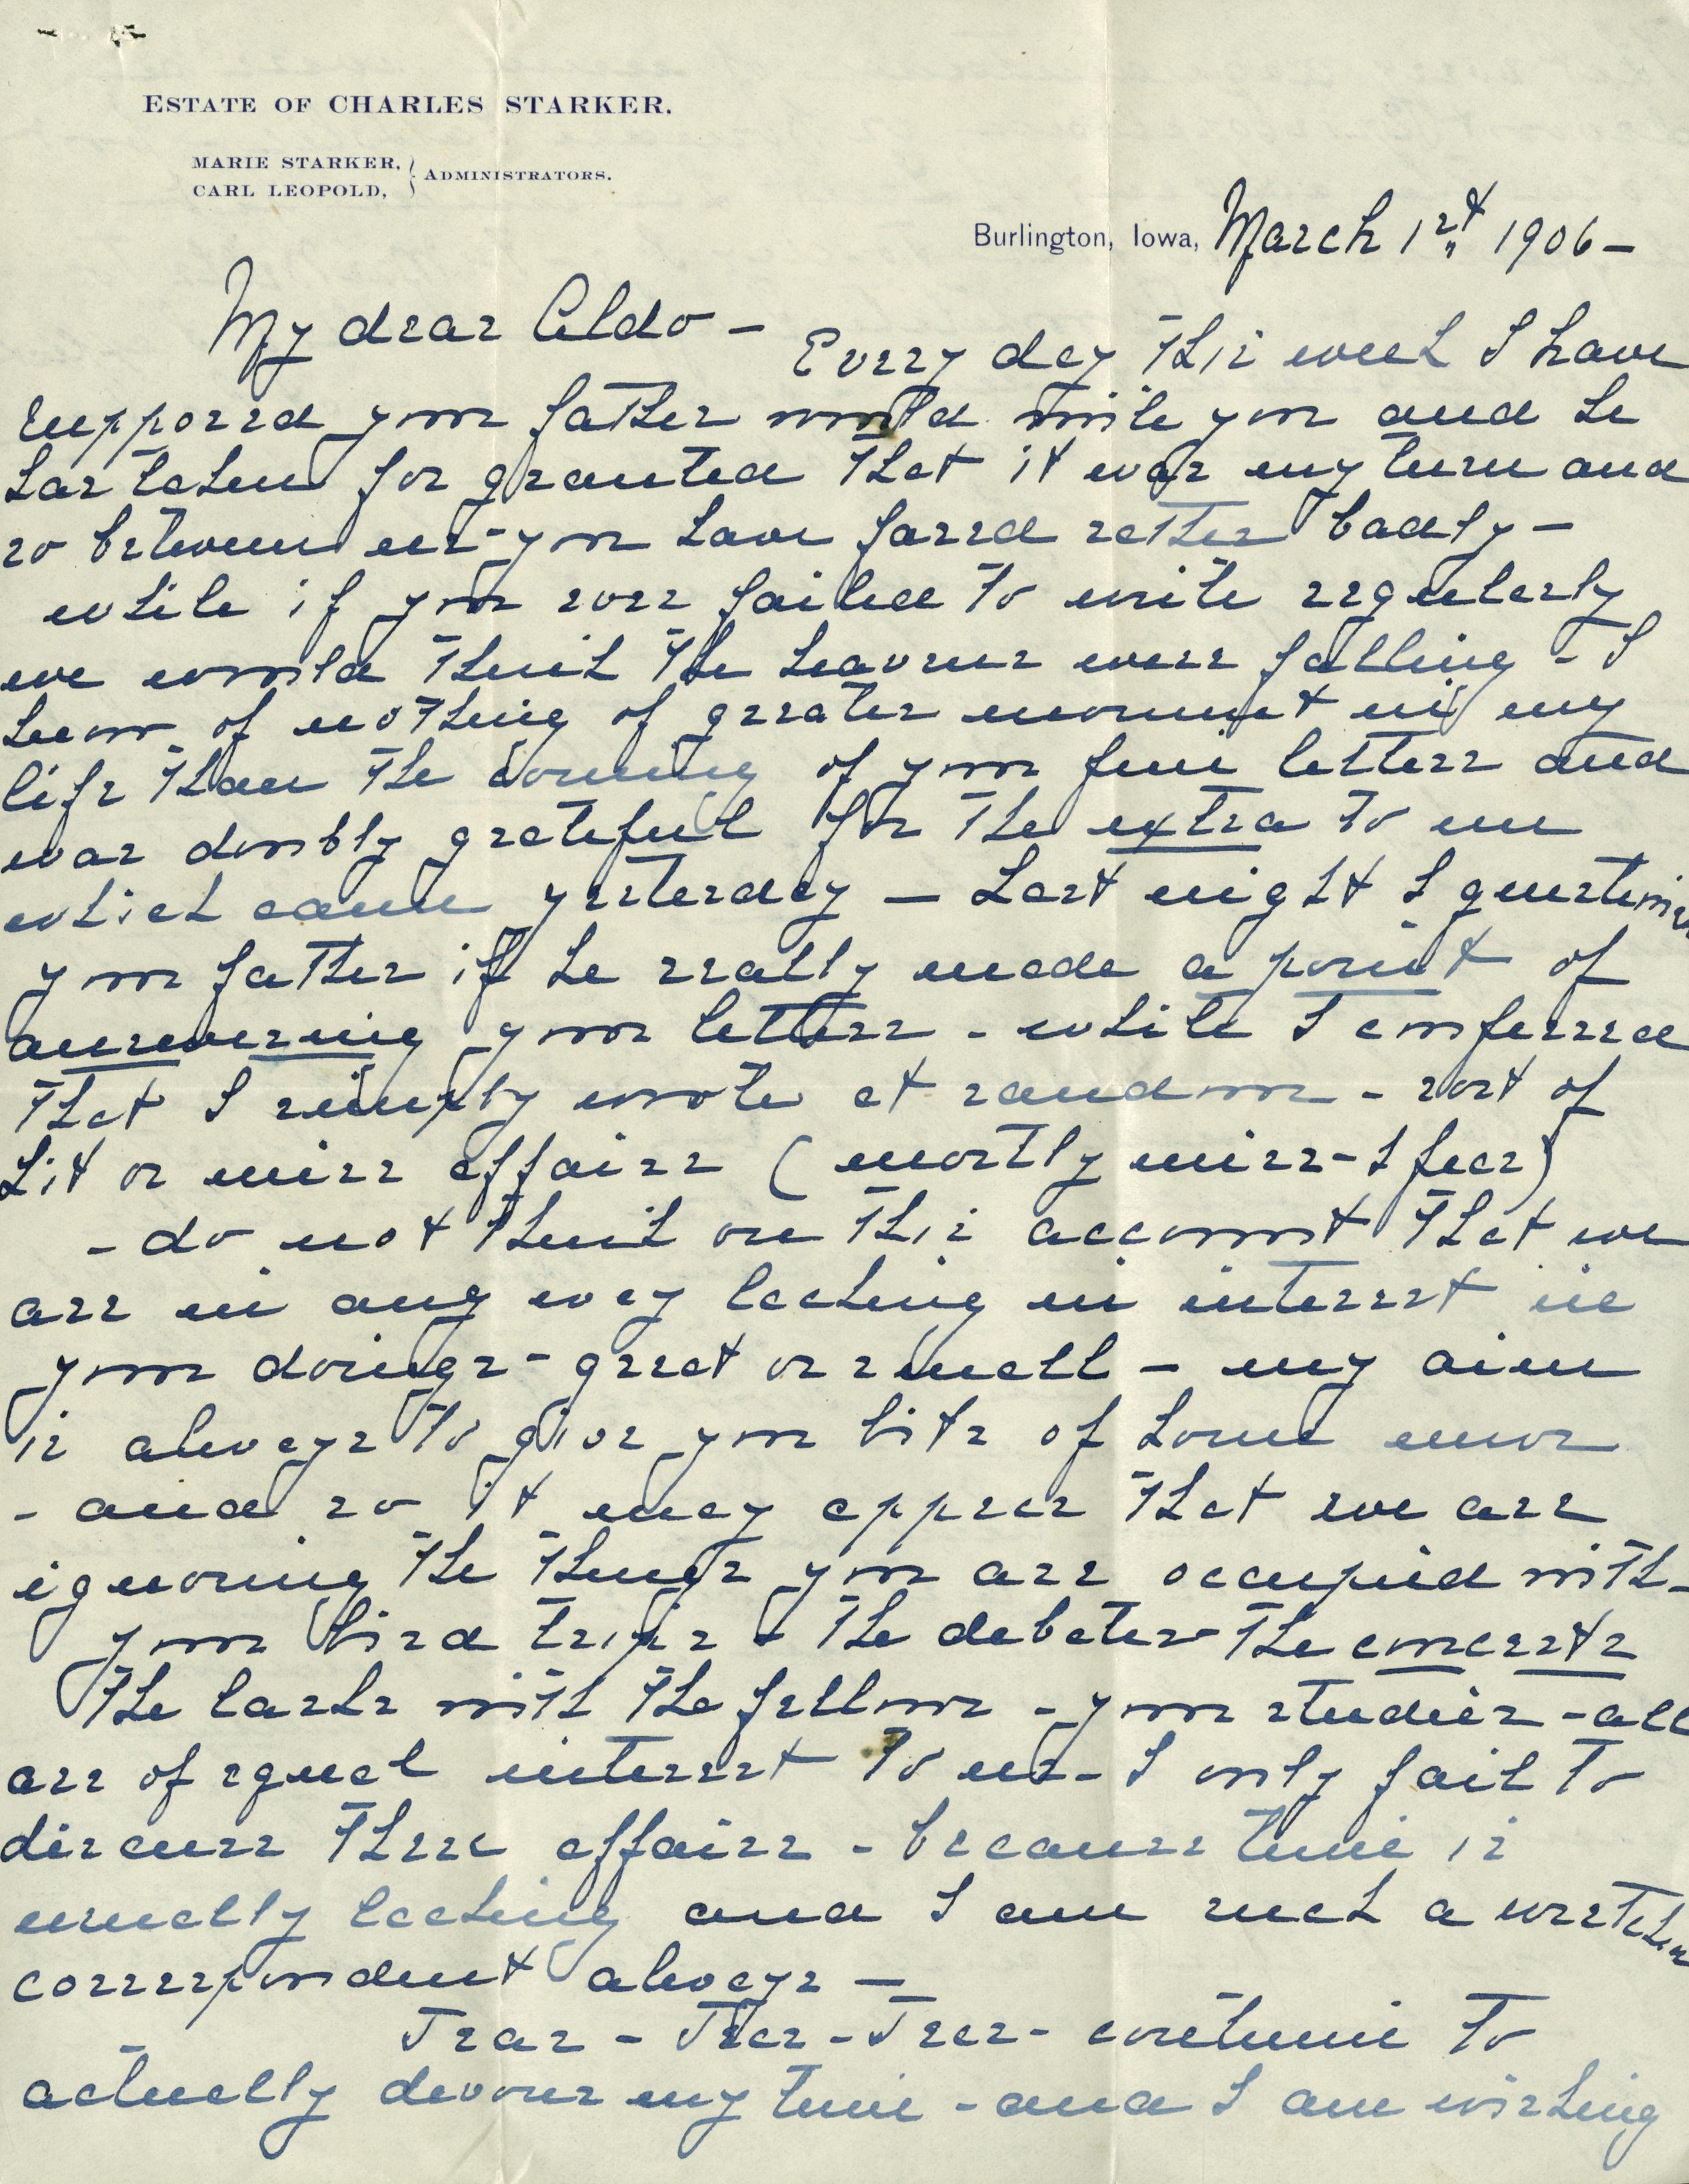 ESTATE OF CHARLES STARKER.
MARIE STARKER,
CARL LEOPOLD,
ADMINISTRATORS.
Burlington, Iowa, March 1st 1906 -
My dear Aldo -
Every day this week I have
supposed your father would write you and he
has taken for granted that it was my turn and
so between us - you have fared rather badly -
while if you ever failed to write regularly
we would think the heavens were falling - I
know of nothing of greater moment in my
life than the coming of your fine letters and
was doubly grateful for the extra to me
which came yesterday - Last night I questioned
your father if he really made a point of
answering your letters - while I confessed
that I simply wrote at random - sort of
hit or miss affairs (mostly miss - I fear)
- do not think on this account that we
are in any way lacking in interest in
your doings - great or small - my aim
is always to give you bits of home news
- and so it may appear that we are
ignoring the things you are occupied with -
your bird trips - the debates - the concerts
the larks with the fellows - your studies - all
are of equal interest to us - I only fail to
discuss these affairs - because time is
usually lacking and I am such a wretched
correspondent always -
Tear - Tear - Tear - continue to
actually devour my time - and I am wishing